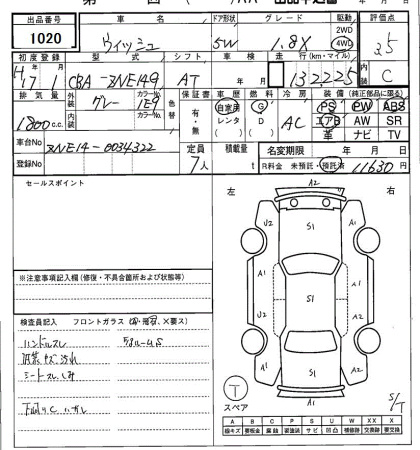 出品番号 車名 ドア形状 グレード 駆動 評価点
1020 ウィッシュ 5W 1.8X 2WD 4WD 3.5
初度登録 型式 シフト 車検 走行(km・マイル) 内装
H17 1 CBA-ZNE14G AT 年 月 132225 C
排気量 外装 カラーNo. 色替 保証書 車歴 燃料 冷房 装備(純正部品に限る)
1800c.c. グレー 1E9 有・無 自家用 G AC PS PW ABS
内装 カラーNo. レンタ D エアB AW SR
革 ナビ TV
車台No. ZNE14-0034322 定員 積載量 名変期限 年 月 日
登録No. 7人 t R料金 未預託・預託済 11630円
セールスポイント 左 右
A2
S1
J2 A1
A1 S1 A1
J2 A1
A2 S1 A2
A1
※注意事項記入欄(修復・不具合箇所および状態等)
検査員記入 フロントガラス
ハンドルスレ
内装キズ汚れ
シートスレ
スペア
A B C P S U W X XX
線キズ 要板金 腐蝕 要塗装 サビ 凹凸 補修跡 交換跡 要交換